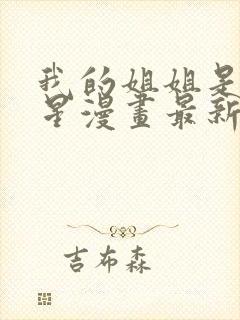 我的姐姐是
星漫畫最新
吉布森